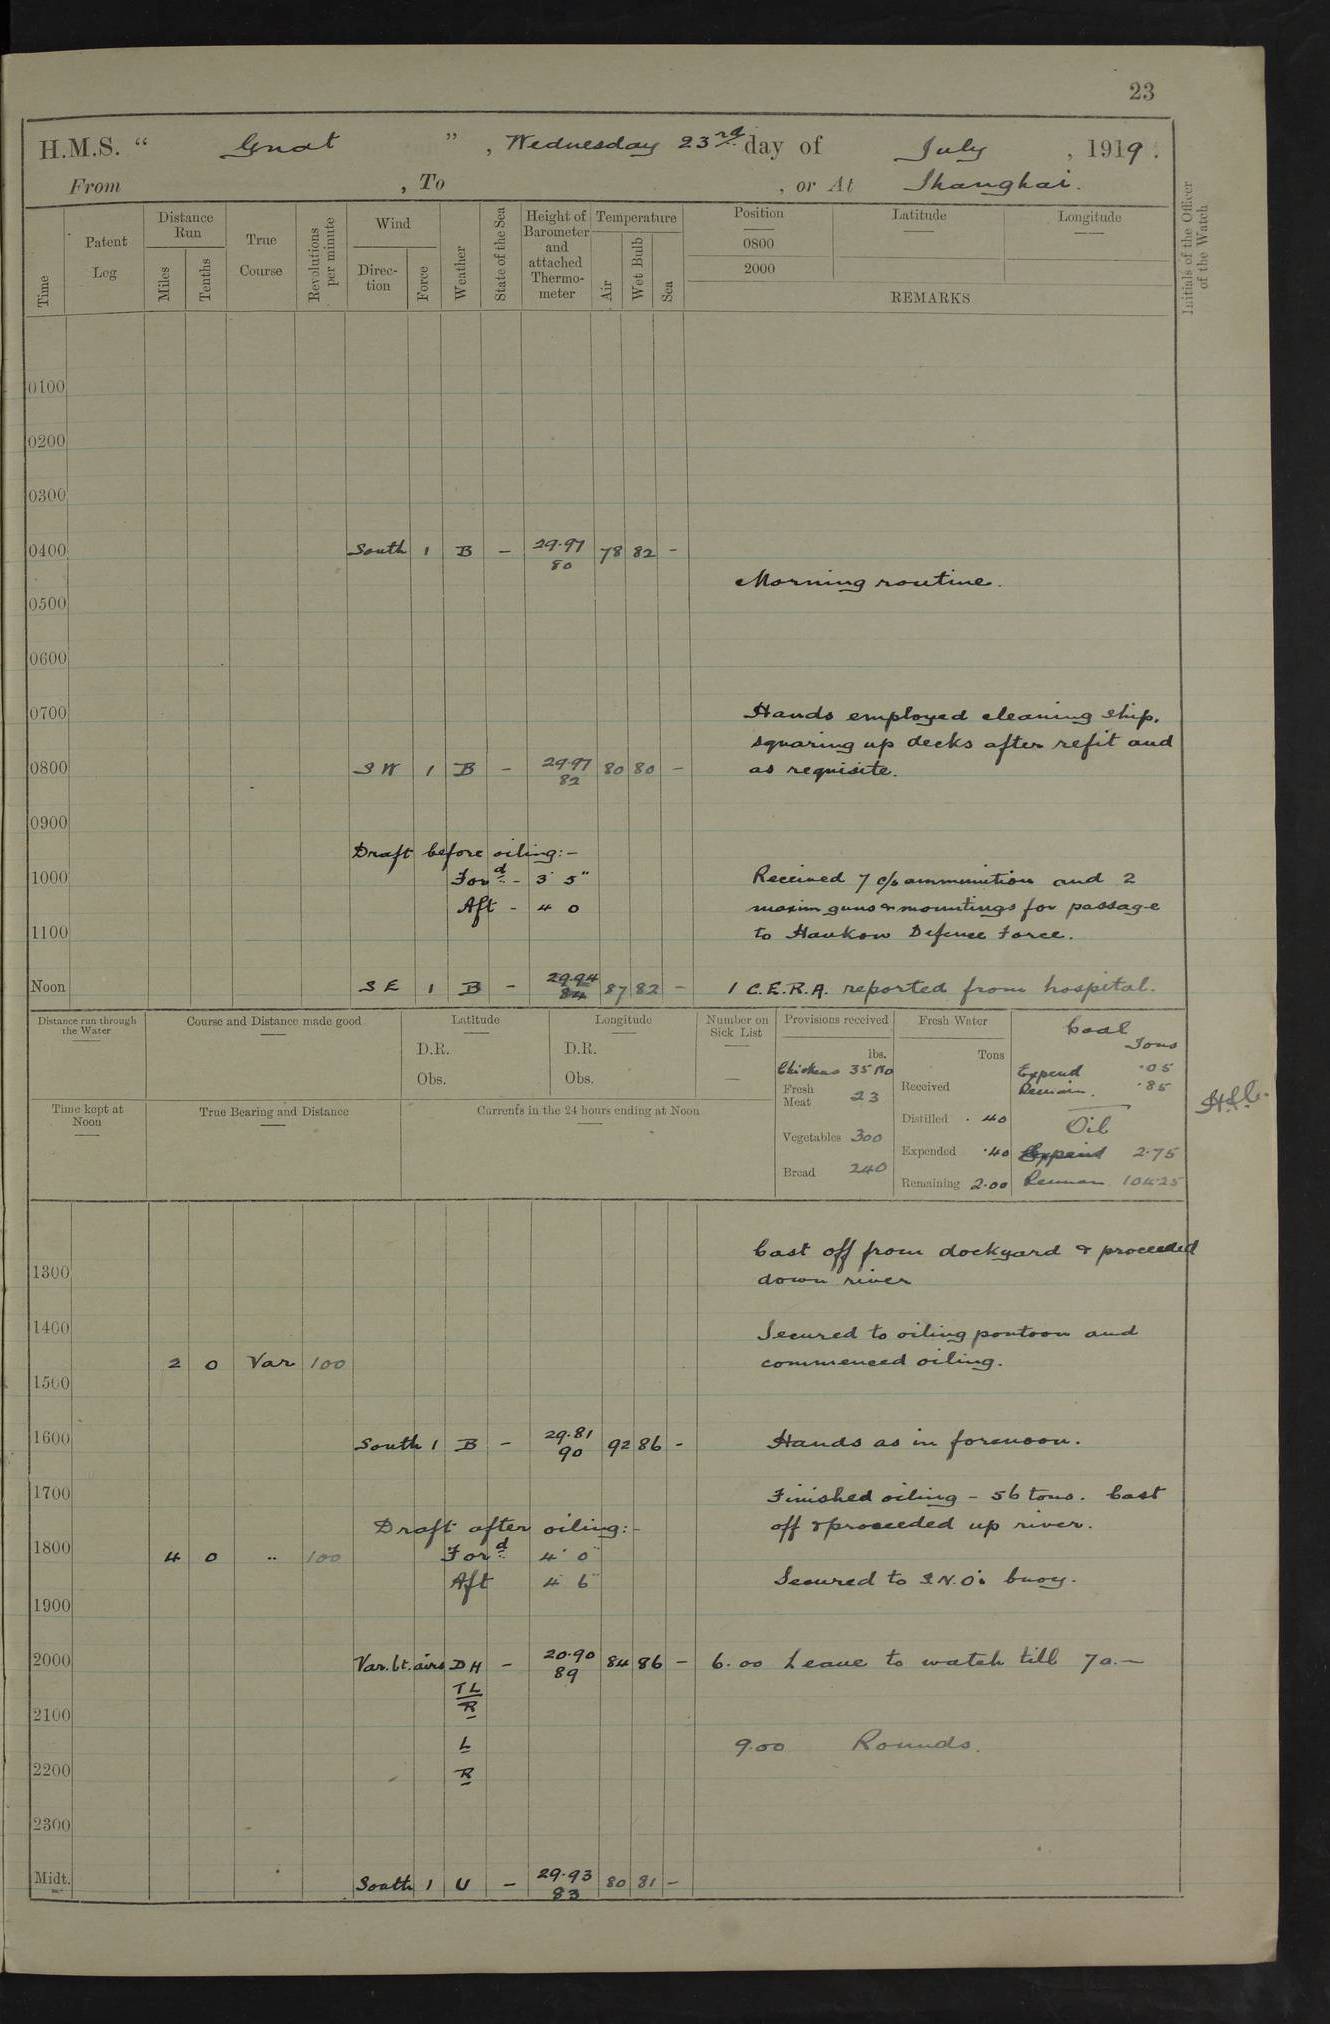 23
H.M.S. “ Gnat ”, Wednesday 23rd day of July, 1919.
From , To , or At Shanghai.
Time
Patent Log
Distance Run
Miles
Tenths
True Course
Revolutions per minute
Wind
Direc-tion
Force
Weather
State of the Sea
Height of Barometer and attached Thermo-meter
Temperature
Air
Wet Bulb
Sea
Position
Latitude
Longitude
0800
2000
REMARKS
Initials of the Officer of the Watch
0100
0200
0300
0400 South 1 B - 29.97 80 78 82 -
Morning routine.
0500
0600
0700 Hands employed cleaning ship,
squaring up decks after refit and
0800 SW 1 B - 29.97 82 80 80 - as requisite.
0900
Draft before oiling:-
1000 Ford - 3' 5" Received 7 c/s ammunition and 2
Aft - 4 0 maxim guns & mountings for passage
1100 to Hankow Defence Force.
Noon SE 1 B - 29.94 84 87 82 - 1 C.E.R.A. reported from hospital.
Distance run through the Water
Course and Distance made good
Latitude
D.R.
Obs.
Longitude
D.R.
Obs.
Number on Sick List
-
Provisions received
lbs.
Chickens 35 No
Fresh Meat 23
Vegetables 300
Bread 240
Fresh Water
Tons
Received
Distilled .40
Expended .40
Remaining 2.00
Coal
Tons
Expend .05
Remain. .85
Oil
Expend 2.75
Remain 104.25
Time kept at Noon
True Bearing and Distance
Currents in the 24 hours ending at Noon
Cast off from dockyard & proceeded
1300 down river
1400 Secured to oiling pontoon and
2 0 Var 100 commenced oiling.
1500
1600 South 1 B - 29.81 90 92 86 - Hands as in forenoon.
1700 Finished oiling - 56 tons. Cast
Draft after oiling:- off & proceeded up river.
1800 4 0 " 100 Ford 4' 0"
Aft 4' 6" Secured to S.N.O's buoy.
1900
2000 Var. lt. airs DH - 20.90 89 84 86 - 6.00 Leave to watch till 7a.-
TL
R
2100
L 9.00 Rounds.
2200 R
2300
Midt. South 1 U - 29.93 83 80 81 -